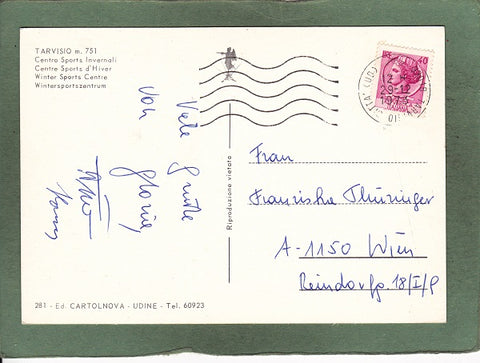 TARVISIO m. 751
Centro Sports Invernali
Centre Sports d'Hiver
Winter Sports Centre
Wintersportszentrum
Viele Grüße
von
Hans
Riproduzione vietata
40
29-12
Frau
Franziska Thüringer
A-1150 Wien
Reindorfg. 18/I/9
281 - Ed. CARTOLNOVA - UDINE - Tel. 60923